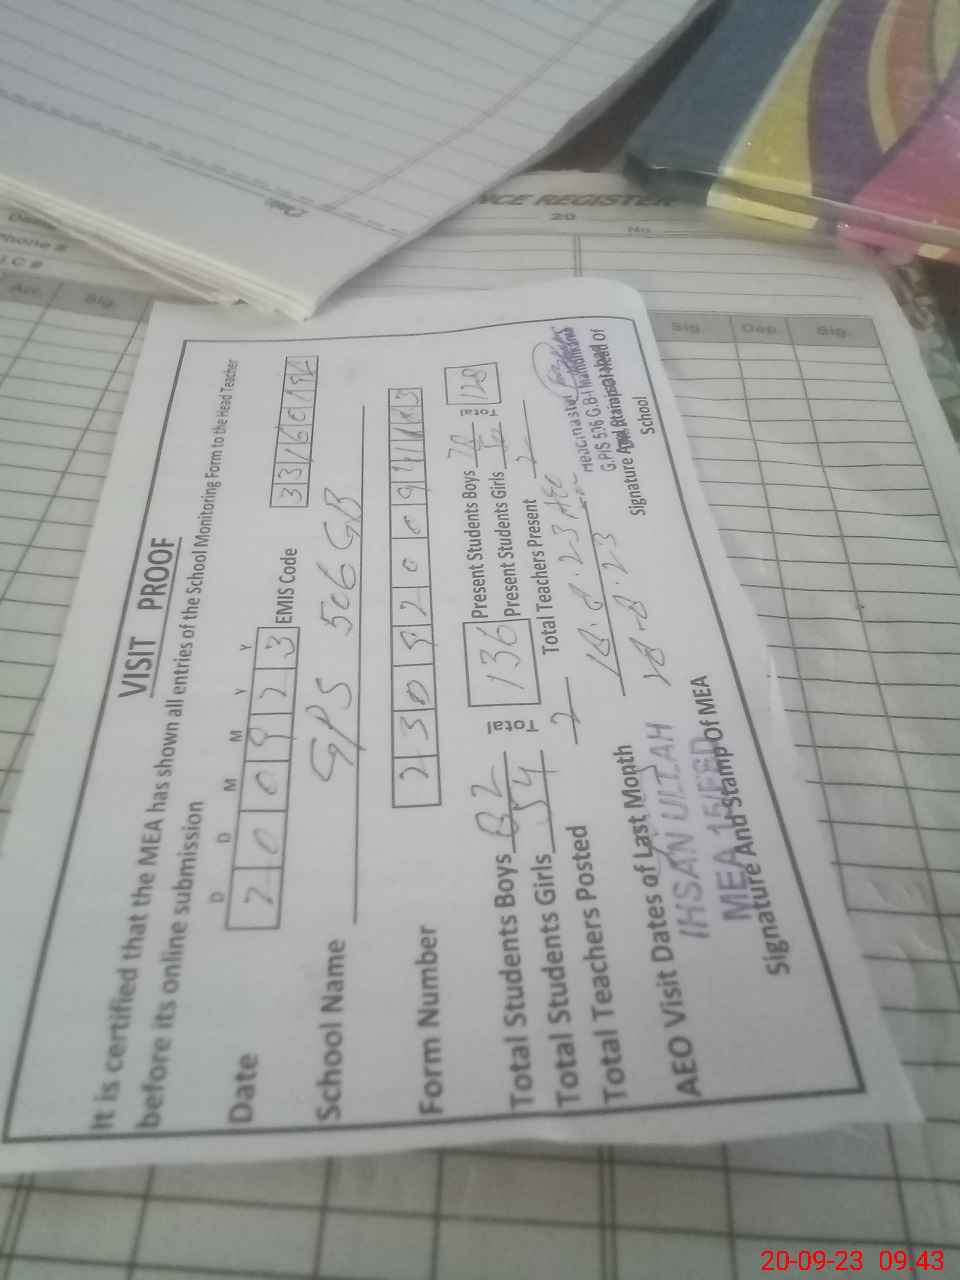 VISIT PROOF
It is certified that the MEA has shown all entries of the School Monitoring Form to the Head Teacher
before its online submission
D D M M Y Y
Date 2 0 0 9 2 3 EMIS Code 3 3 1 6 0
School Name GPS 506 GB
Form Number 2 3 0 9 2 0 0 9
Total Students Boys 82 Total 136 Present Students Boys Total 128
Total Students Girls 54 Present Students Girls
Total Teachers Posted 2 Total Teachers Present 2
AEO Visit Dates of Last Month 18.8.23 AEO
28.8.23
IHSAN ULLAH
MEA
Signature And Stamp Of MEA
G.P/S 506 G.B
Signature And Stamp Head of
School
CE REGISTER
20
No.
Sig.
Dep.
Sig.
Arr.
Sig.
Phone #
Date
20-09-23 09.43